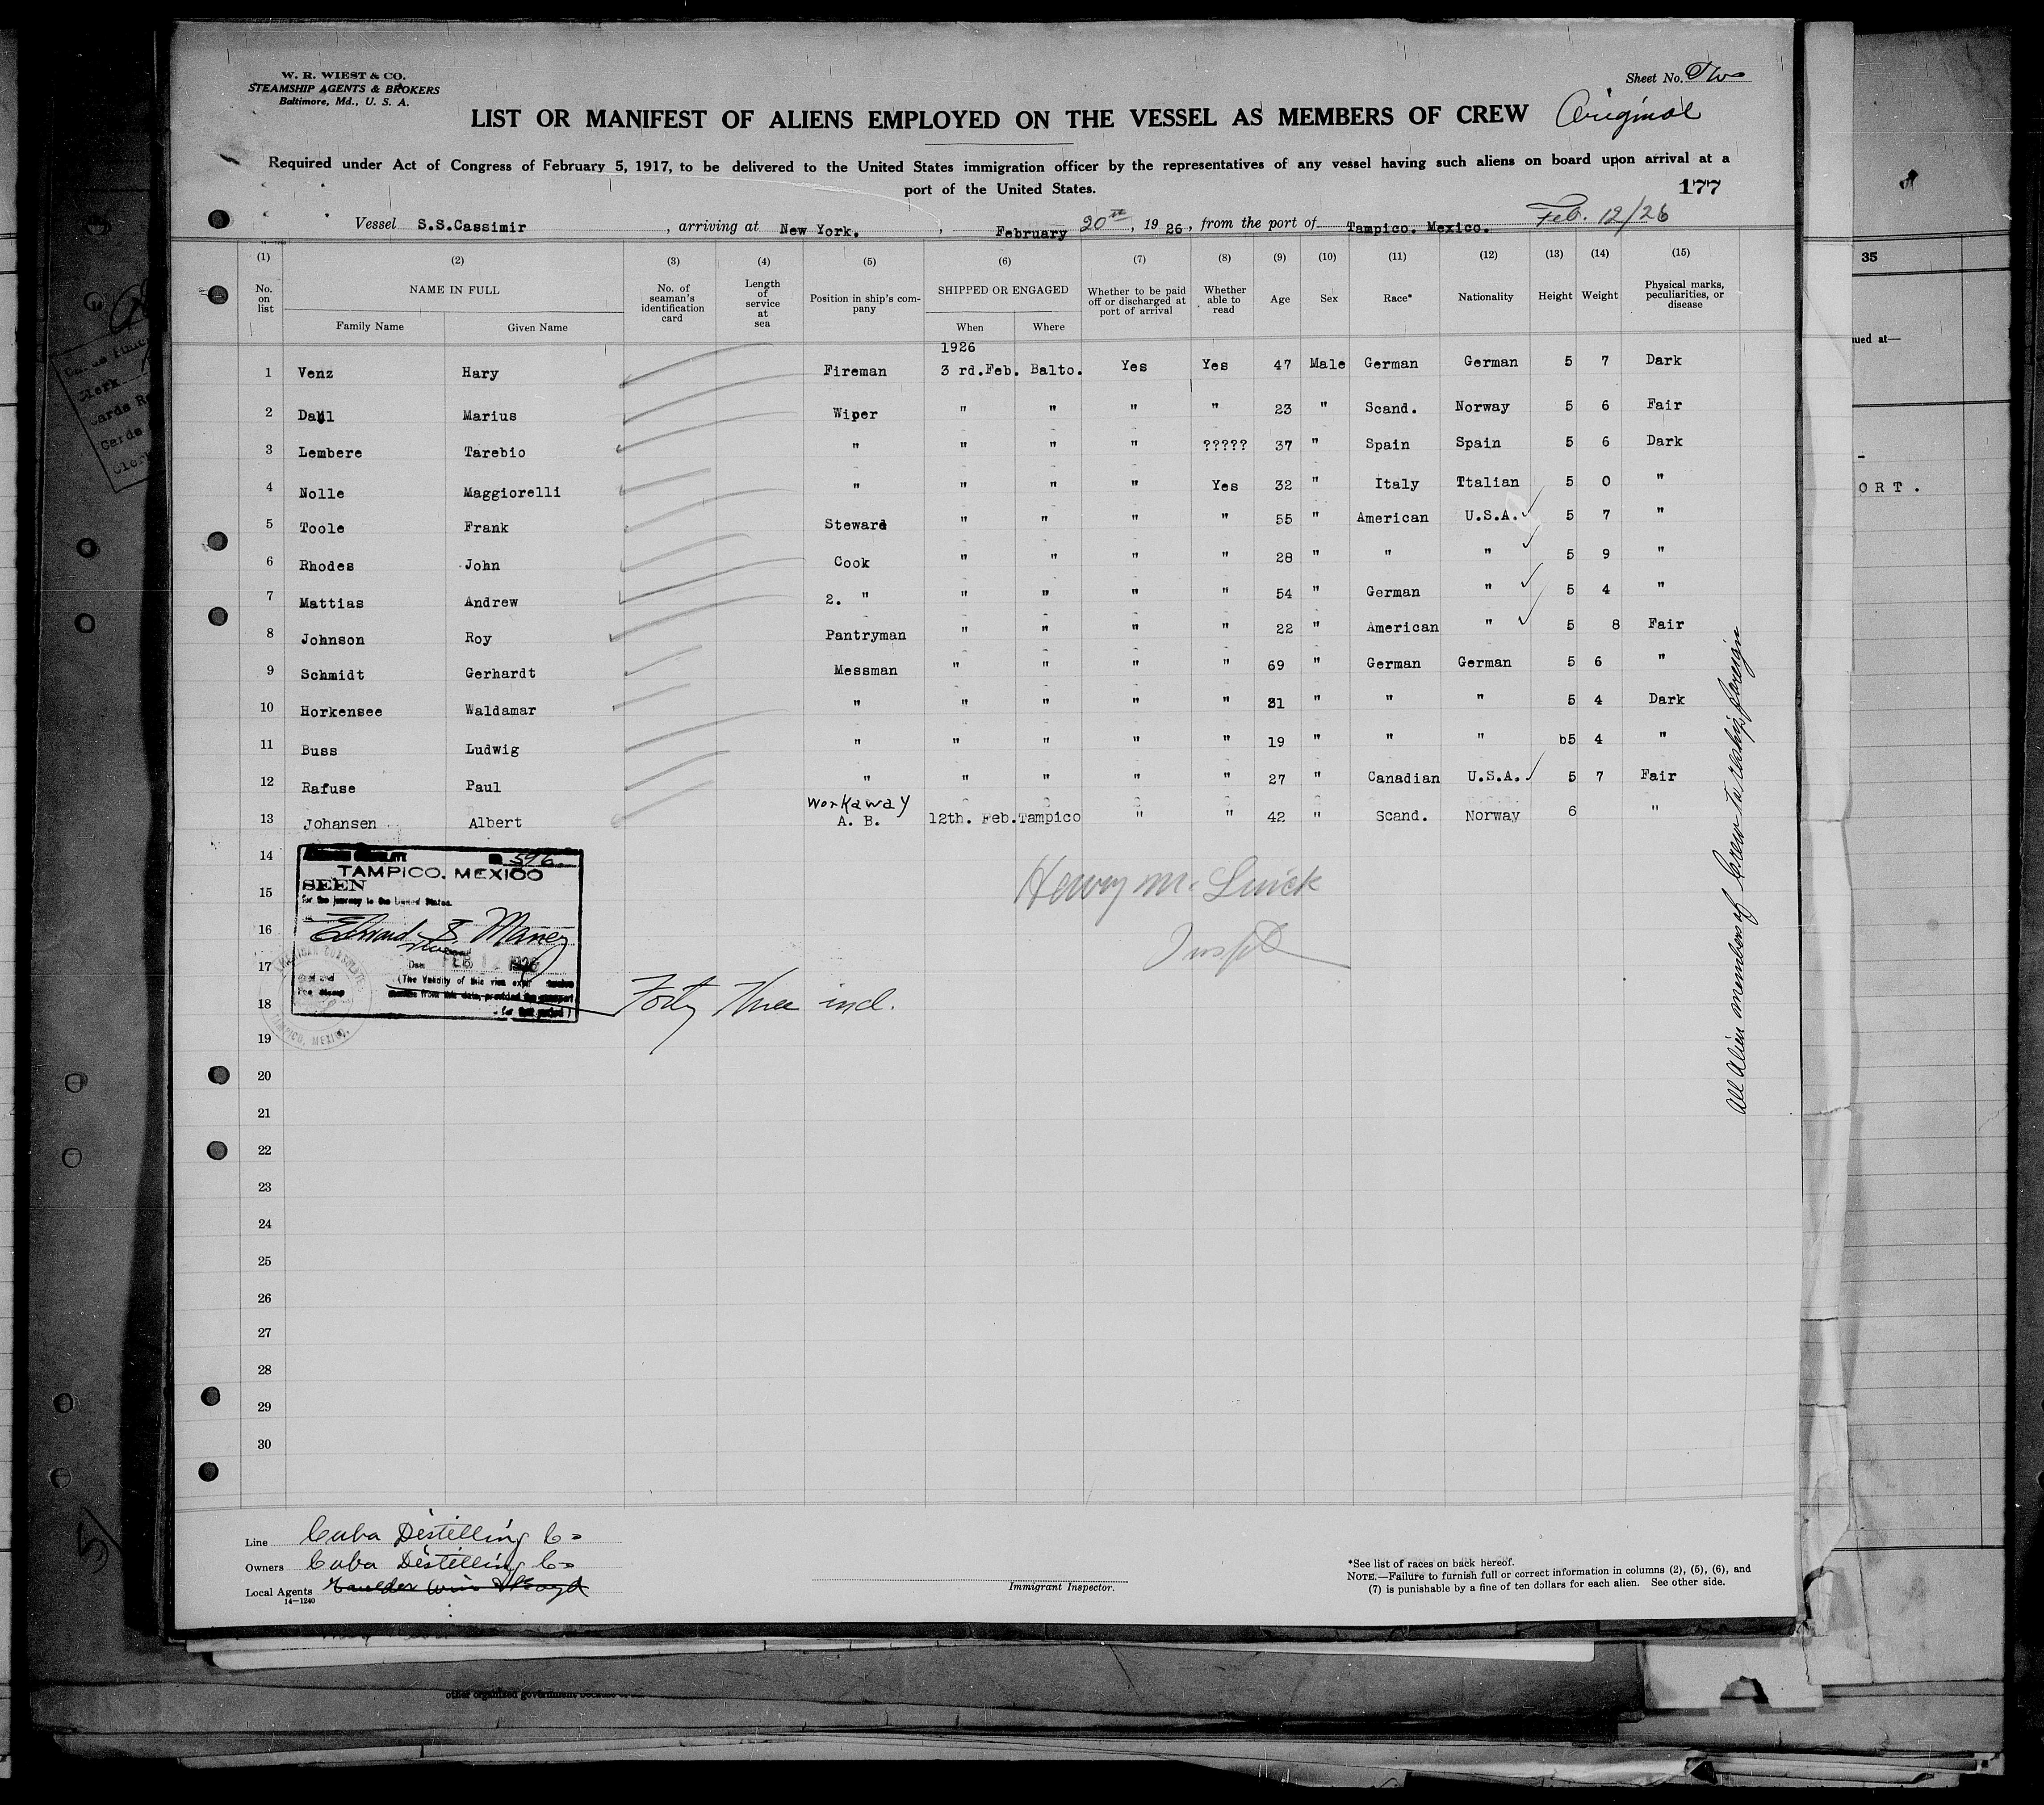 W. R. WIEST & CO.
STEAMSHIP AGENTS & BROKERS
Baltimore, Md., U. S. A.
Sheet No. Two
LIST OR MANIFEST OF ALIENS EMPLOYED ON THE VESSEL AS MEMBERS OF CREW Original
Required under Act of Congress of February 5, 1917, to be delivered to the United States immigration officer by the representatives of any vessel having such aliens on board upon arrival at a
port of the United States.
177
Vessel S.S.Cassimir, arriving at New York., February 20th, 1926, from the port of Tampico. Mexico. Feb. 12/26
(1) (2) (3) (4) (5) (6) (7) (8) (9) (10) (11) (12) (13) (14) (15)
No. on list NAME IN FULL Family Name Given Name No. of seaman's identification card Length of service at sea Position in ship's company SHIPPED OR ENGAGED When Where Whether to be paid off or discharged at port of arrival Whether able to read Age Sex Race* Nationality Height Weight Physical marks, peculiarities, or disease
1926
1 Venz Hary Fireman 3 rd.Feb. Balto. Yes Yes 47 Male German German 5 7 Dark
2 Dahl Marius Wiper " " " " 23 " Scand. Norway 5 6 Fair
3 Lembere Tarebio " " " " ????? 37 " Spain Spain 5 6 Dark
4 Nolle Maggiorelli " " " " Yes 32 " Italy Ttalian 5 0 "
5 Toole Frank Steward " " " " 55 " American U.S.A. 5 7 "
6 Rhodes John Cook " " " " 28 " " " 5 9 "
7 Mattias Andrew 2. " " " " " 54 " German " 5 4 "
8 Johnson Roy Pantryman " " " " 22 " American " 5 8 Fair
9 Schmidt Gerhardt Messman " " " " 69 " German German 5 6 "
10 Horkensee Waldamar " " " " " 31 " " " 5 4 Dark
11 Buss Ludwig " " " " " 19 " " " b5 4 "
12 Rafuse Paul " " " " " 27 " Canadian U.S.A. 5 7 Fair
Workaway
13 Johansen Albert A. B. 12th. Feb. Tampico " " 42 " Scand. Norway 6 "
14
15
16
17
18
19
20
21
22
23
24
25
26
27
28
29
30
596
TAMPICO, MEXICO
SEEN
for the journey to the United States.
Edward S. Maney
FEB 12 1926
(The Validity of this visa
AMERICAN CONSULATE
TAMPICO, MEXICO.
Forty three incl.
Henry M.
Insptr
All Alien members of Crew to reship foreign
Line Cuba Distilling Co
Owners Cuba Distilling Co
Local Agents
14—1240
Immigrant Inspector.
*See list of races on back hereof.
NOTE.—Failure to furnish full or correct information in columns (2), (5), (6), and
(7) is punishable by a fine of ten dollars for each alien. See other side.
35
ued at—
ORT.
other organized government because